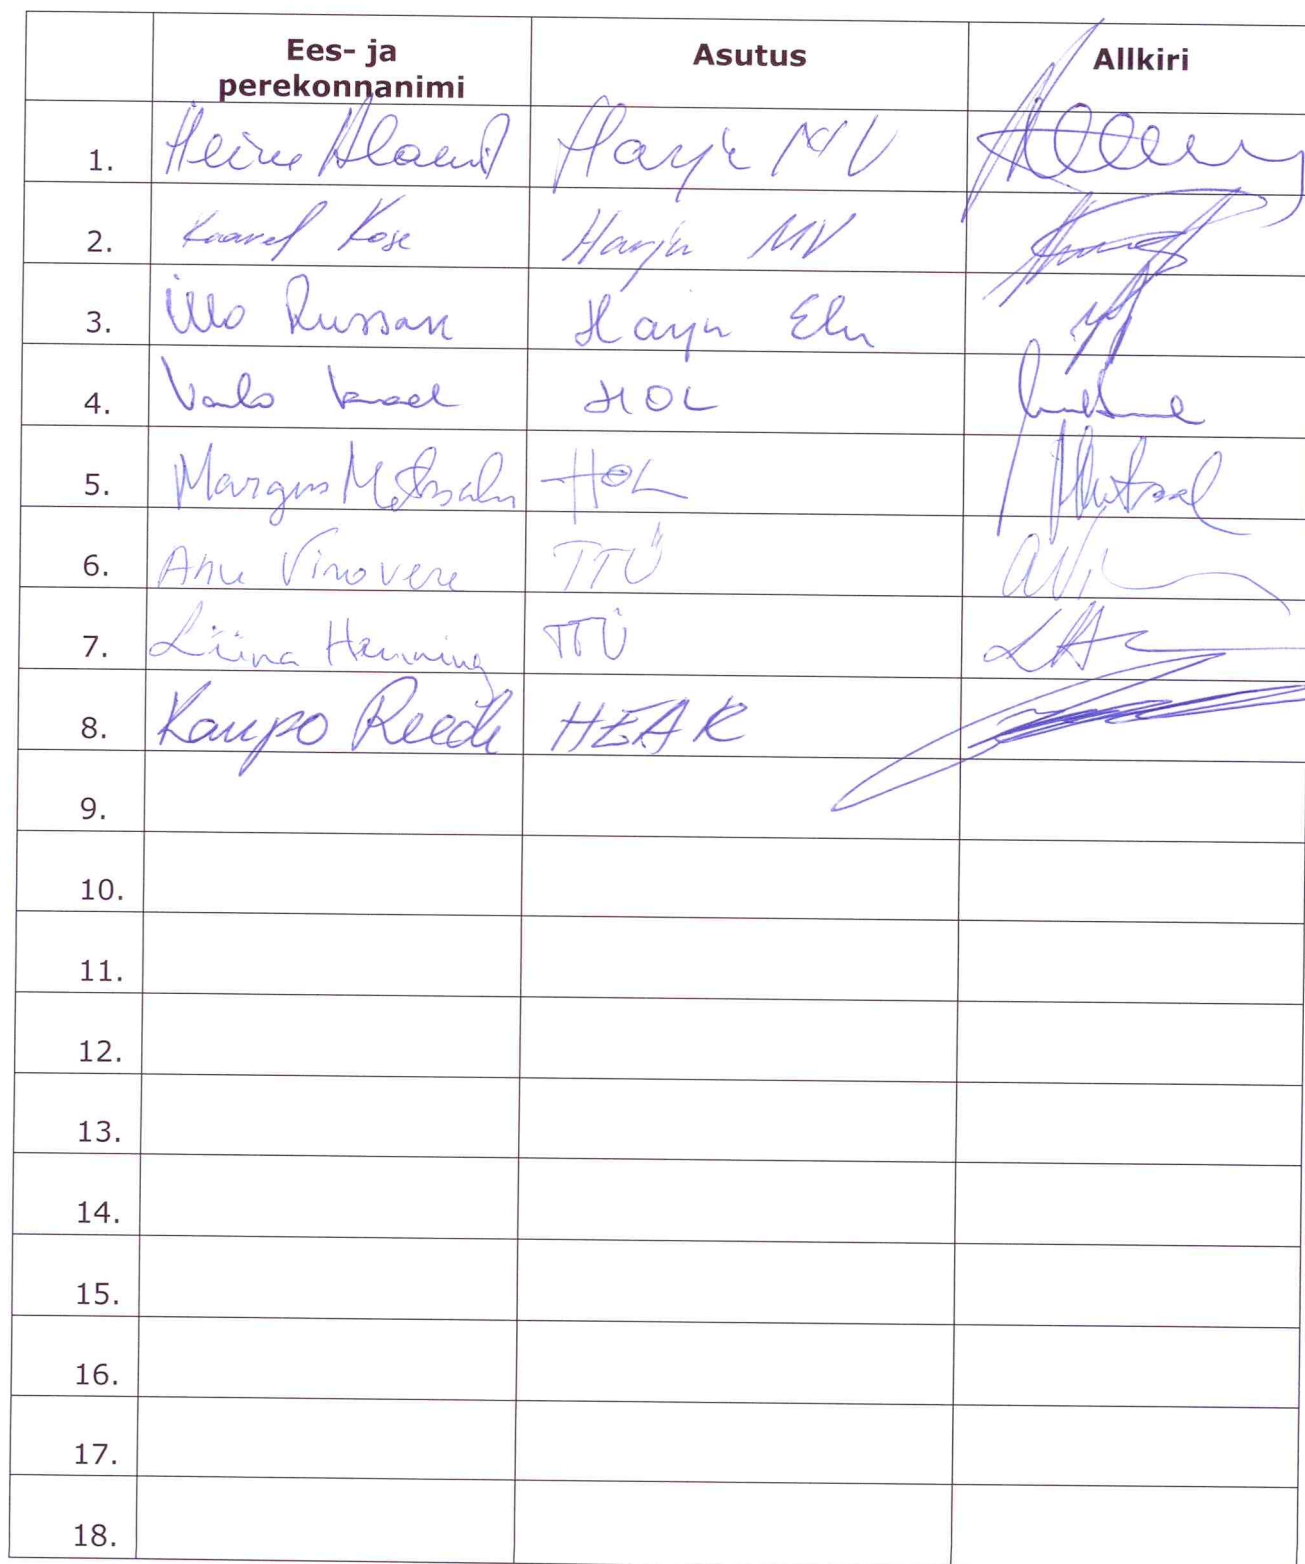 Ees- ja perekonnanimi Asutus Allkiri
1. Heino Alaniit Harju MV
2. Kaarel Kose Harju MV
3. Üllo Russak Harju Elu
4. Vallo HOL
5. Margus Metsalu HOL
6. Anu Vinovere TTÜ
7. Liina Henning TTÜ
8. Kaupo Reede HEAK
9.
10.
11.
12.
13.
14.
15.
16.
17.
18.